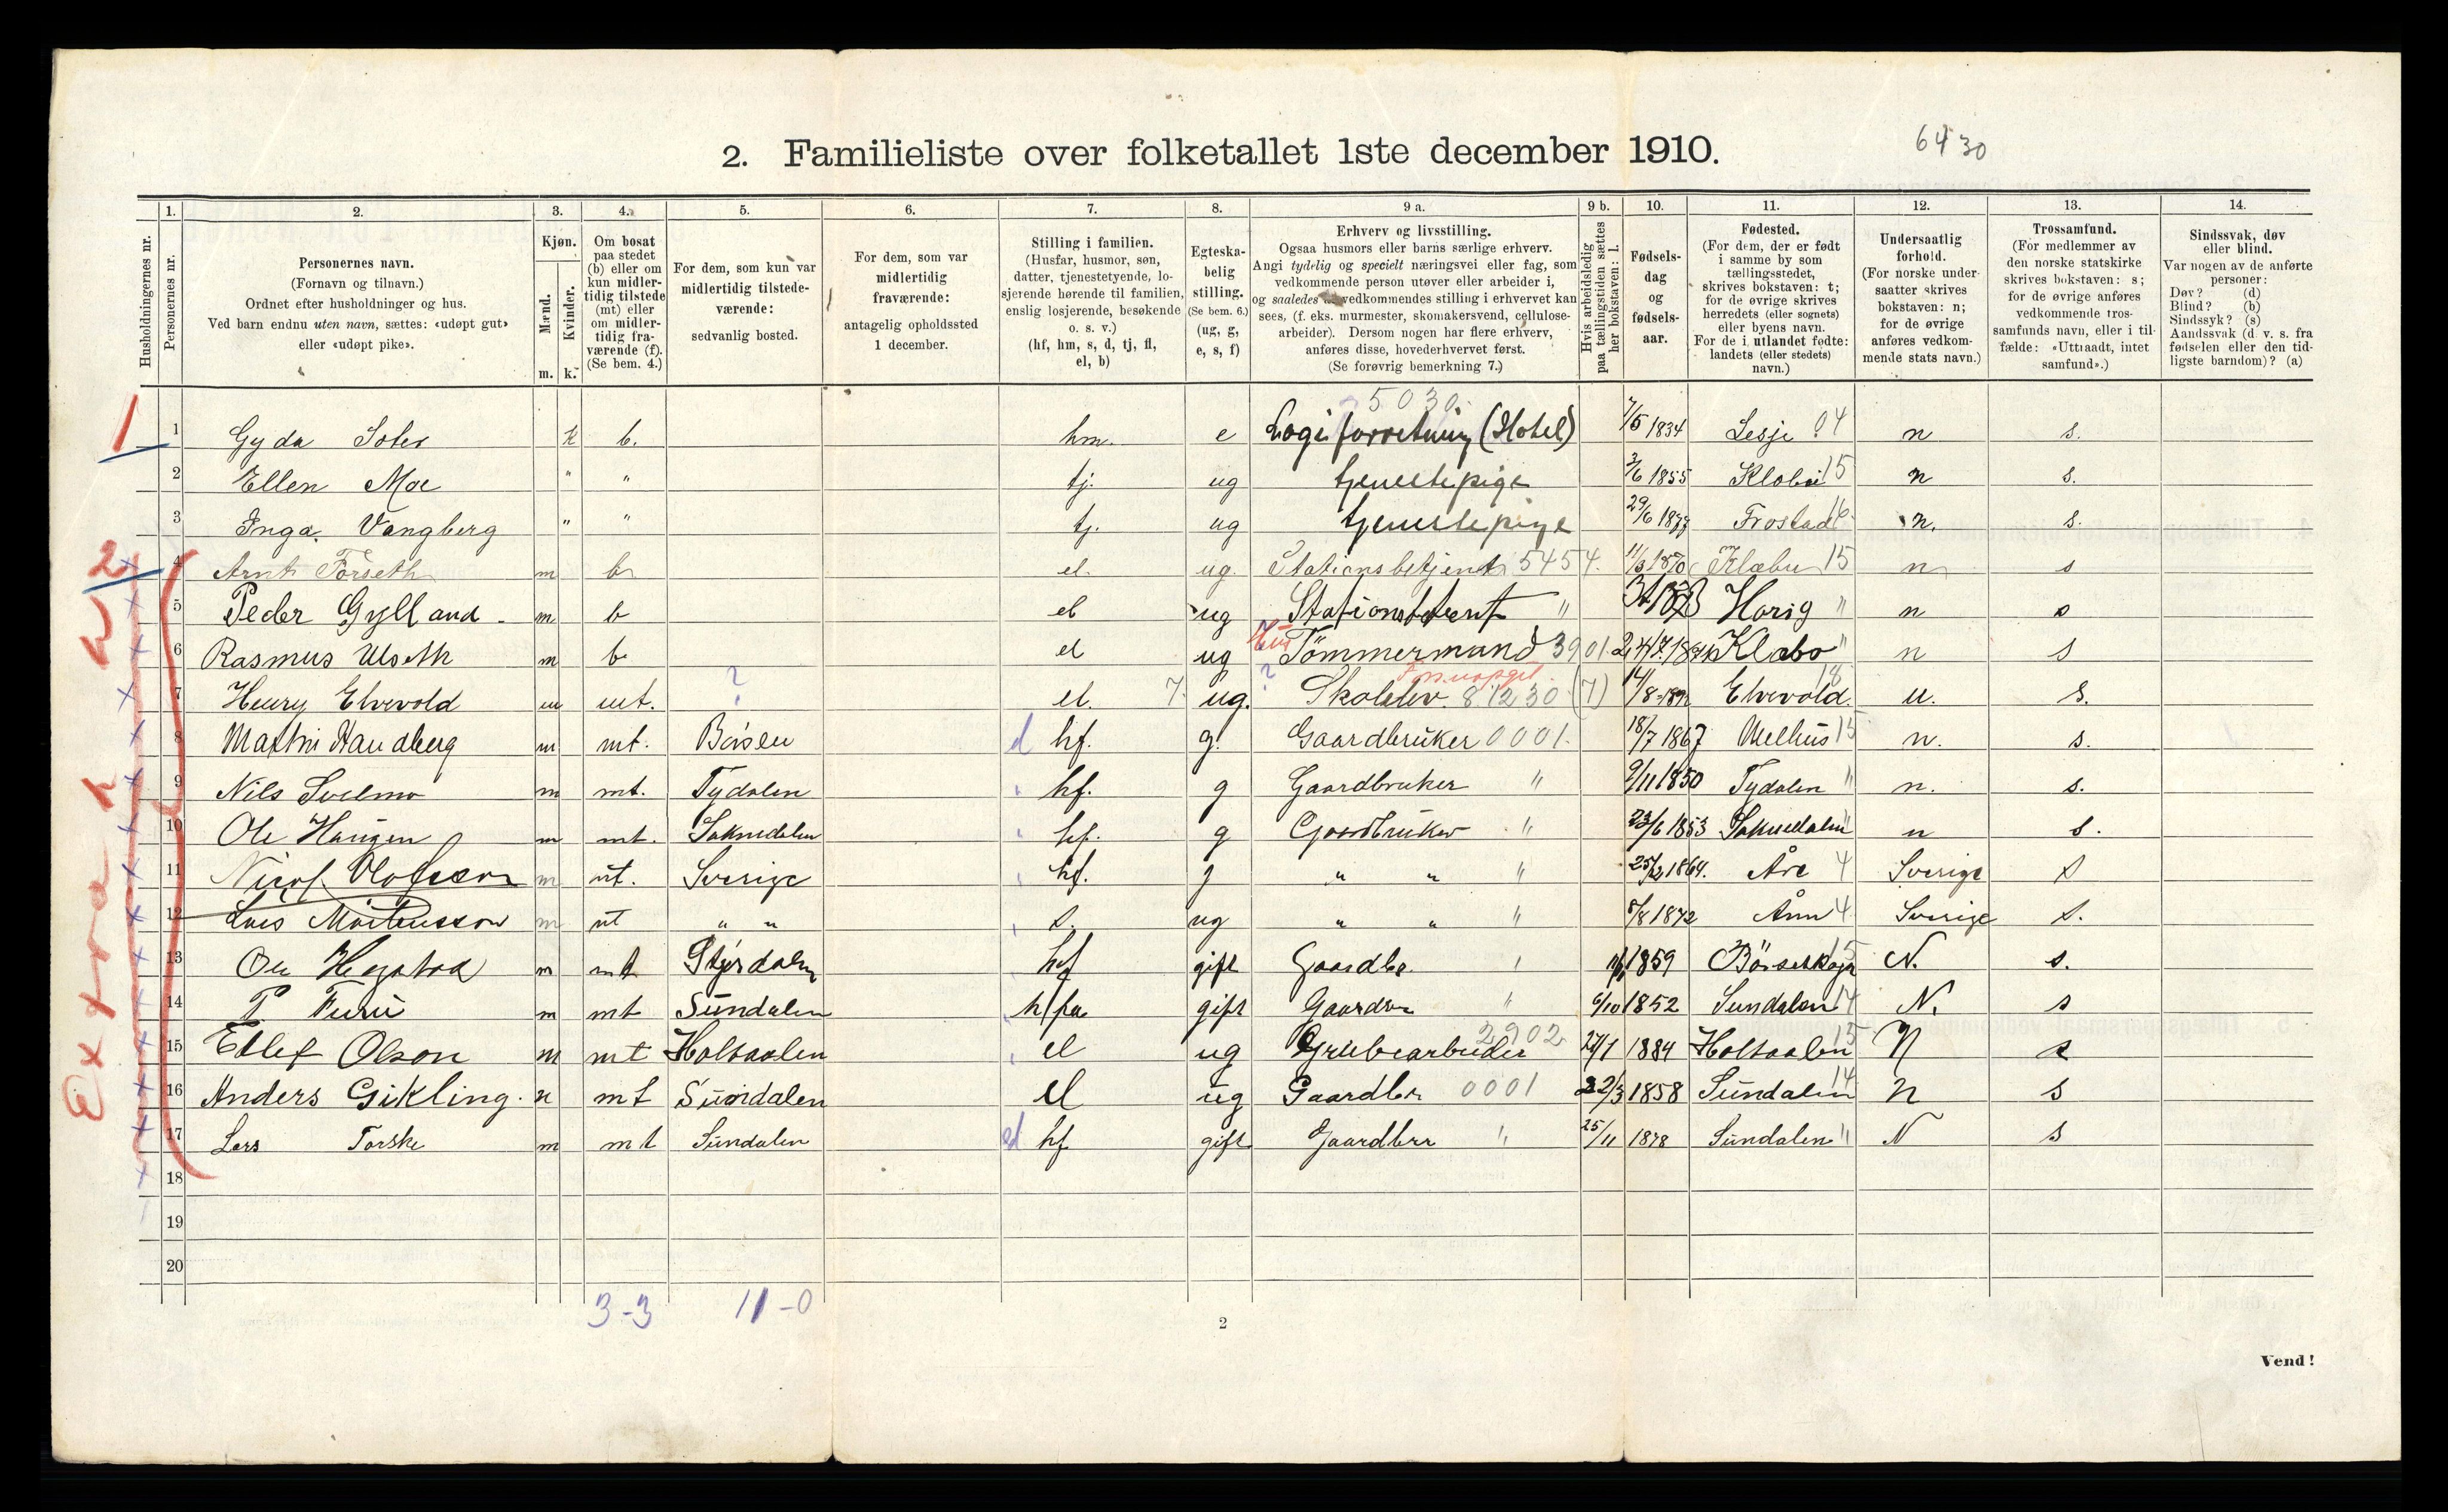 2. Familieliste over folketallet 1ste december 1910.
6430
1. 2. 3. 4. 5. 6. 7. 8. 9 a. 9 b. 10. 11. 12. 13. 14.
Husholdningernes nr.
Personernes nr.
Personernes navn.
(Fornavn og tilnavn.)
Ordnet efter husholdninger og hus.
Ved barn endnu uten navn, sættes: «udøpt gut»
eller «udøpt pike».
Kjøn.
Mænd.
Kvinder.
m. k.
Om bosat
paa stedet
(b) eller om
kun midler-
tidig tilstede
(mt) eller
om midler-
tidig fra-
værende (f).
(Se bem. 4.)
For dem, som kun var
midlertidig tilstede-
værende:
sedvanlig bosted.
For dem, som var
midlertidig
fraværende:
antagelig opholdssted
1 december.
Stilling i familien.
(Husfar, husmor, søn,
datter, tjenestetyende, lo-
sjerende hørende til familien,
enslig losjerende, besøkende
o. s. v.)
(hf, hm, s, d, tj, fl,
el, b)
Egteska-
belig
stilling.
(Se bem. 6.)
(ug, g,
e, s, f)
Erhverv og livsstilling.
Ogsaa husmors eller barns særlige erhverv.
Angi tydelig og specielt næringsvei eller fag, som
vedkommende person utøver eller arbeider i,
og saaledes at vedkommendes stilling i erhvervet kan
sees, (f. eks. murmester, skomakersvend, cellulose-
arbeider). Dersom nogen har flere erhverv,
anføres disse, hovederhvervet først.
(Se forøvrig bemerkning 7.)
Hvis arbeidsledig
paa tællingstiden sættes
her bokstaven: l.
Fødsels-
dag
og
fødsels-
aar.
Fødested.
(For dem, der er født
i samme by som
tællingsstedet,
skrives bokstaven: t;
for de øvrige skrives
herredets (eller sognets)
eller byens navn.
For de i utlandet fødte:
landets (eller stedets)
navn.)
Undersaatlig
forhold.
(For norske under-
saatter skrives
bokstaven: n;
for de øvrige
anføres vedkom-
mende stats navn.)
Trossamfund.
(For medlemmer av
den norske statskirke
skrives bokstaven: s;
for de øvrige anføres
vedkommende tros-
samfunds navn, eller i til-
fælde: «Uttraadt, intet
samfund».)
Sindssvak, døv
eller blind.
Var nogen av de anførte
personer:
Døv? (d)
Blind? (b)
Sindssyk? (s)
Aandssvak (d. v. s. fra
fødselen eller den tid-
ligste barndom)? (a)
5030.
1 1 Gyda Soter k b. hm. e Logiforretning (Hotel) 7/5 1834 Lesje 04 n s.
2 Ellen Moe " " tj. ug tjenestepige 3/6 1855 15 n s.
3 Inga Vangberg " " tj. ug tjenestepige 29/6 1877 n. s.
2 4 Arnt Forseth m b el. ug. Stationsbetjent 5454. 1870 Klæbu 15 n s
5 Peder Gylland m b el ug " Horig " n s
6 Rasmus Ulseth m b el ug Tömmermand 3901 Klæbo " n s
7 Henry Elvevold m mt. ? el. 7 ug. ? Skoleelev 81230 (7) Elvevold 18 n. s.
8 m mt. Börsen d hf. g. Gaardbruker 0001. 18/7 1867 Melhus 15 n. s.
9 Nils m mt. Tydalen hf. g Gaardbruker " 9/11 1850 Tydalen " n. s.
10 Ole Haugen m mt. Soknedalen hf. g Gaardbruker " 23/6 1853 Soknedalen " n s.
11 Olofsson m mt. Sverige hf. g " " " 1864. Åre 4 Sverige s
12 Lars Mårtensson m mt " " s. ug " " " 5/8 1872 Ånn 4 Sverige s.
13 m mt Stjørdalen hf gift Gaardbr 1859 Börseskogn 15 N. s.
14 P Furu m mt Sundalen h fa gift " 6/10 1852 Sundalen 14 N. s
15 Ellef Olson m mt Holtaalen el ug Grubearbeider 2902 27/1 1884 Holtaalen 15 N s
16 Anders Gikling. m mt Sundalen el ug Gaardbr 0001 22/3 1858 Sundalen 14 N s
17 Lars Torske m mt Sundalen d hf gift Gaardbr " 25/11 1878 Sundalen " N s
18
19
20
Extrah h
3-3 11-0
2
Vend!